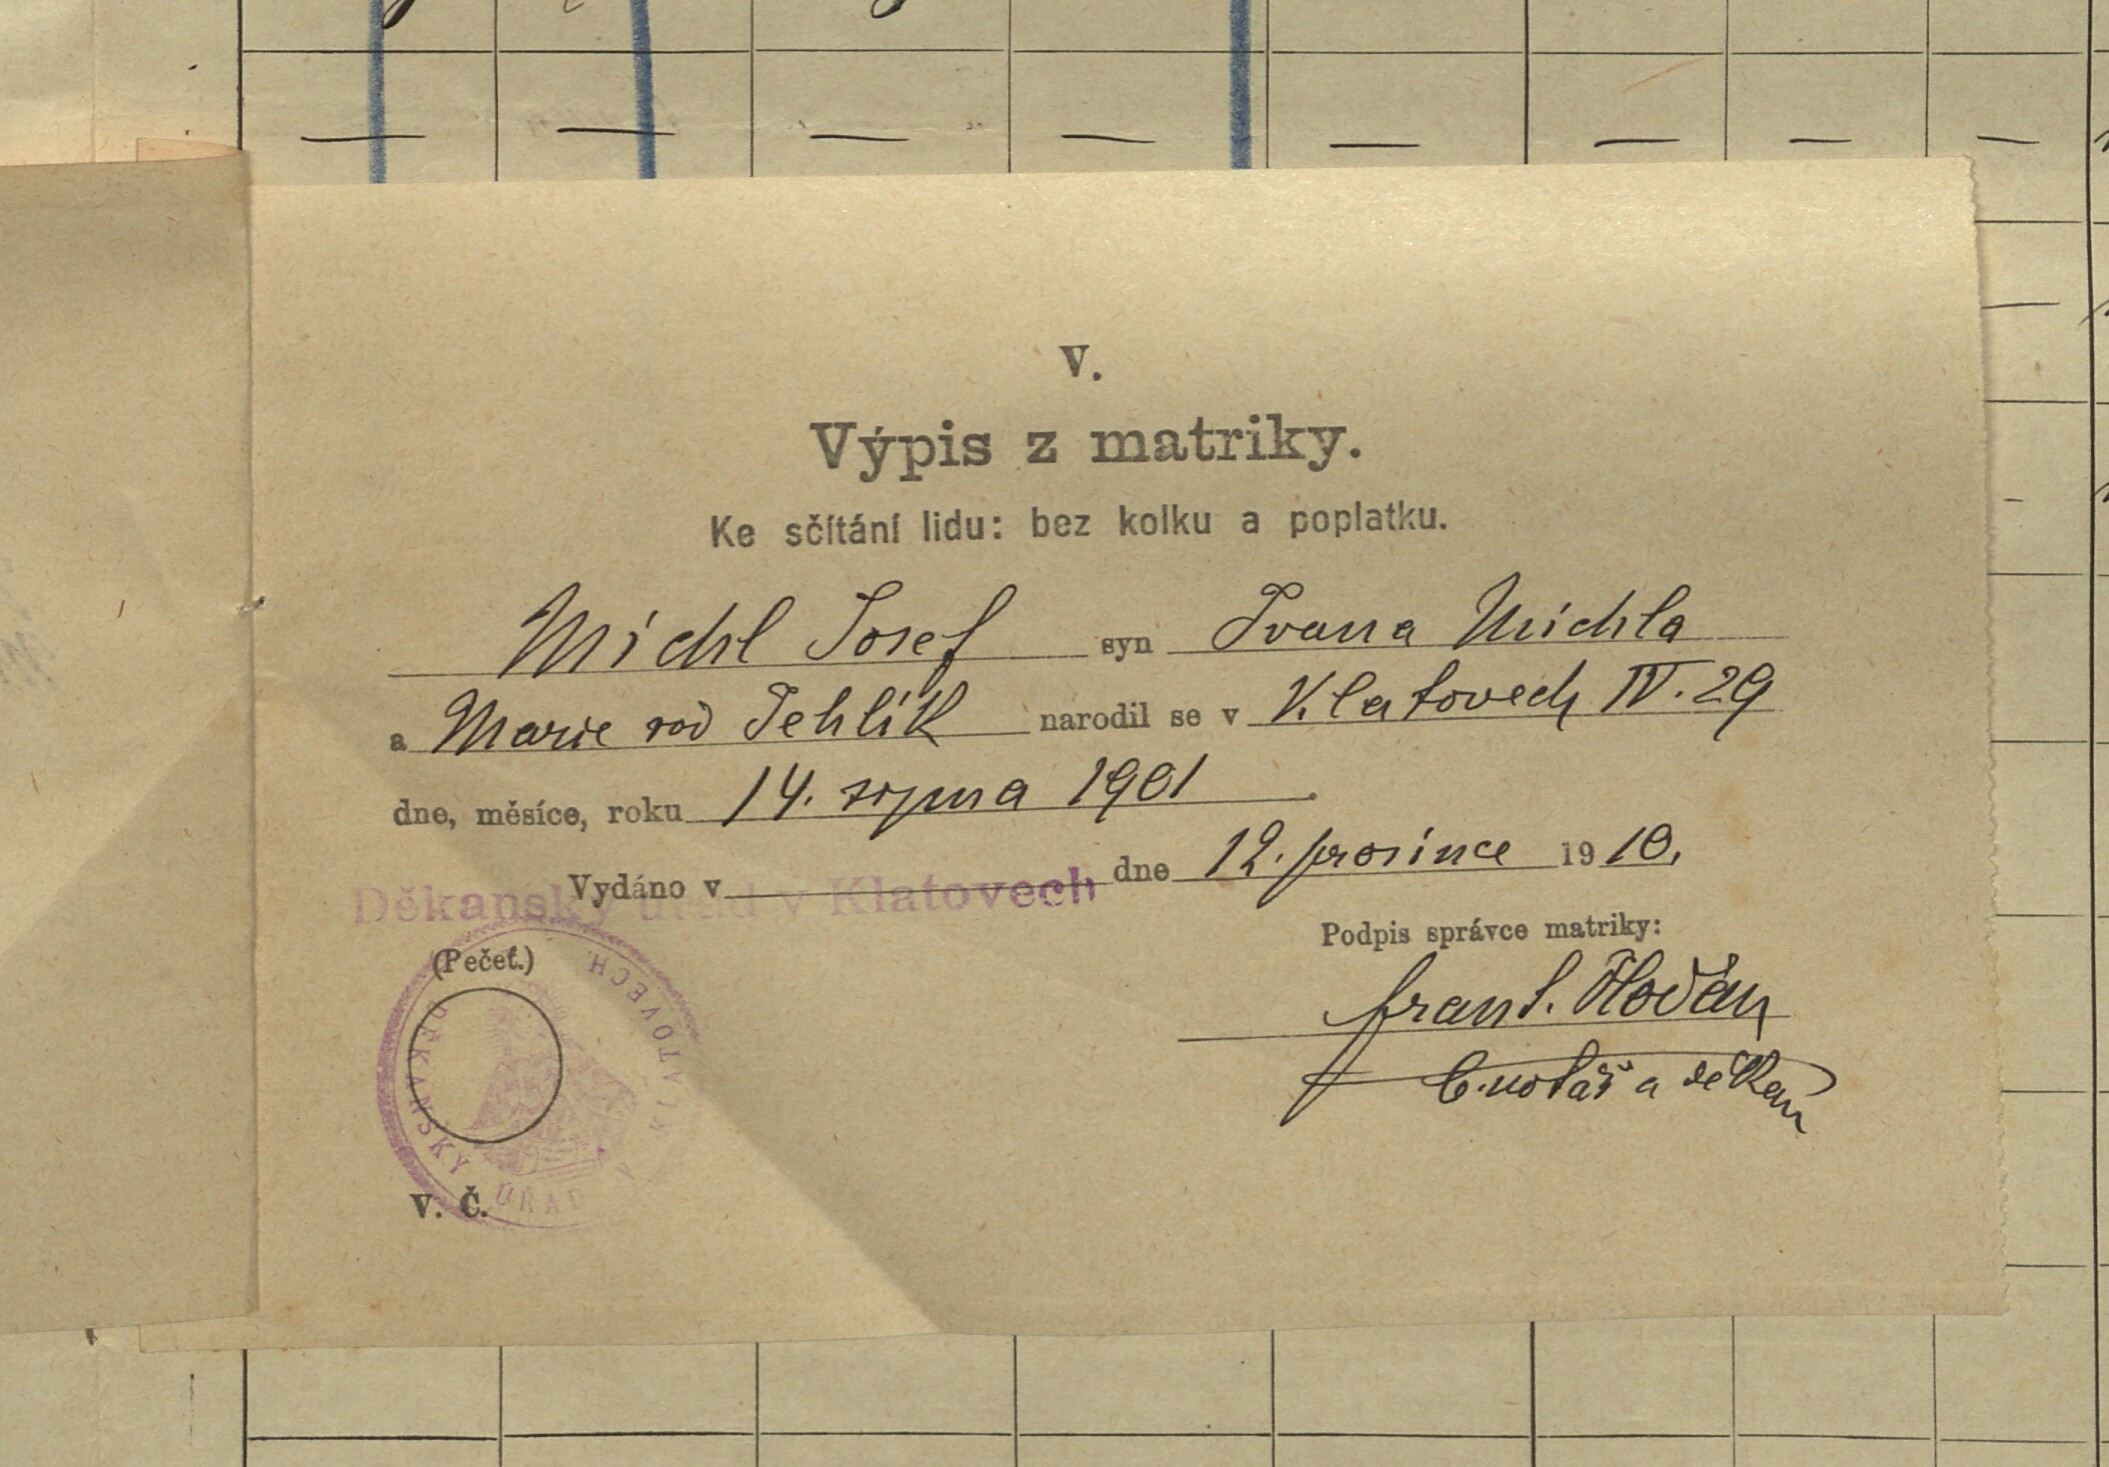 V.
Výpis z matriky.
Ke sčítání lidu: bez kolku a poplatku.
Michl Josef syn Ivana Michla
a Marie rod Jehlík narodil se v Klatovech IV. 29
dne, měsíce, roku 14. srpna 1901.
Vydáno v Děkanský úřad v Klatovech dne 12. prosince 1910.
Podpis správce matriky:
(Pečeť.)
Frant.
b. notář a děkan
DĚKANSKÝ ÚŘAD V KLATOVECH.
V. Č.